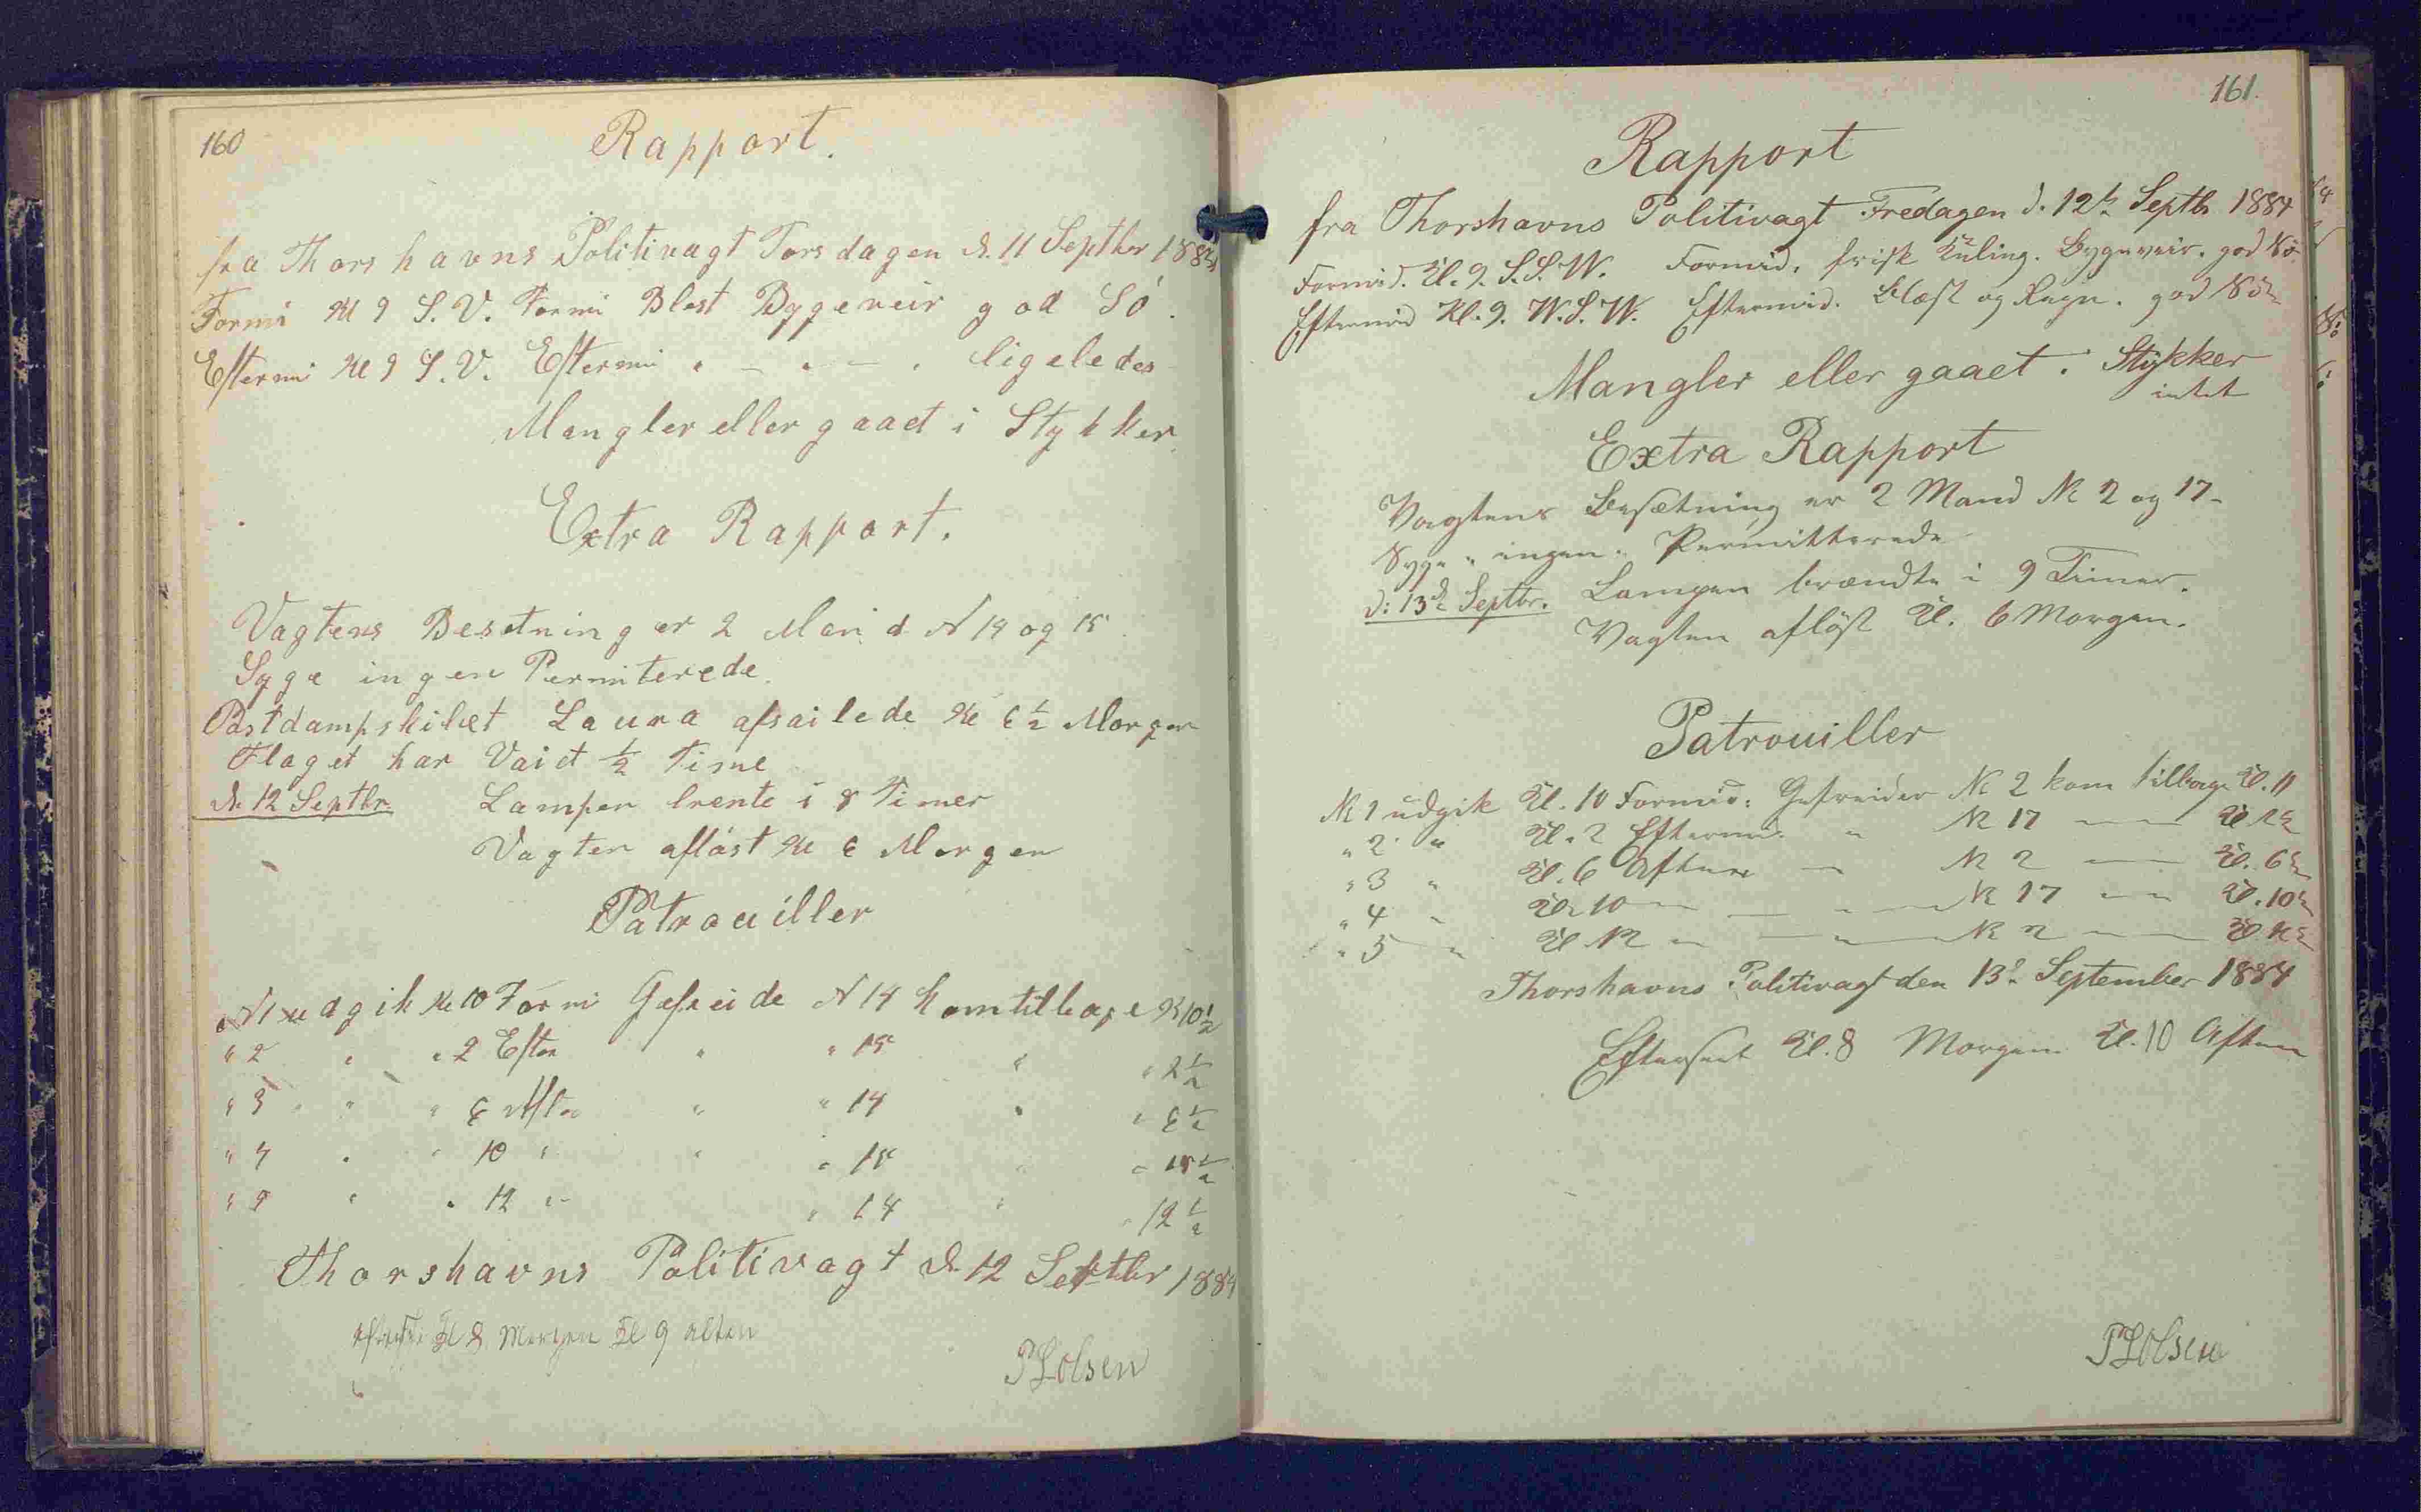 160
Rapport.
fra Thorshavns Politivagt Torsdagen d. 11 Septbr 1884
Formi Kl 9 S.V. Formi Blest Bygeveir god Sö.
Eftermi Kl 9 S.V. Eftermi " — " — . ligeledes
Mangler eller gaaet i Stykker
Extra Rapport.
Vagtens Besetning er 2 Mand N 14 og 15
Syge ingen Permiterede.
Postdampskibet Laura afsailede Kl 6½ Morgen
Flaget har Vaiet ½ Time
d. 12 Septbr. Lampen brente i 8 Timer
Vagten aflöst Kl 6 Morgen
Patrouiller
N 1 udgik Kl 10 Formi Gefreide N 14 kom tilbage Kl 10½
" 2 " " 2 Efter " " 15 " " 2½
" 3 " " 6 Aften " " 14 " " 6½
" 4 " " 10 " " " 15 " " 10½
" 5 " " 12 " " 14 " " 12½
Thorshavns Politivagt d. 12 Septbr 1884
Kl 8 Morgen Kl 9 Aften
PLOlsen
161.
Rapport
fra Thorshavns Politivagt Fredagen d. 12te Septb. 1884
Formid. Kl. 9. S.S.W. Formid. frisk Kuling. Bygeveir. god Sö.
Eftermid Kl. 9. W.S.W. Eftermid. Blæst og Regn. god Sö
Mangler eller gaaet i Stykker
intet
Extra Rapport
Vagtens Besætning er 2 Mand № 2 og 17.
Syge " ingen " Permitterede
d: 13de Septbr. Lampen brændte i 9 Timer.
Vagten aflöst Kl. 6 Morgen.
Patrouiller
№ 1 udgik Kl. 10 Formid: Gefreider № 2 kom tilbage Kl. 11
" 2 " Kl. 2 Eftermid. " № 17 — Kl.
" 3 " Kl. 6 Aften — № 2 — Kl. 6½
" 4 " Kl. 10 — — " — № 17 — Kl. 10½
" 5 " Kl 12 — — " — № 2 — Kl.
Thorshavns Politivagt den 13de September 1884
Efterseet Kl. 8 Morgen Kl. 10 Aften
PLOlsen